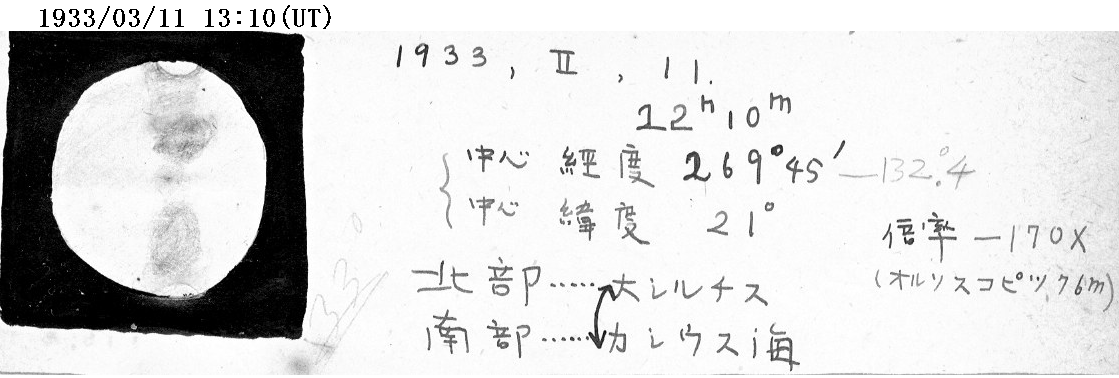 1933/03/11 13:10(UT)
1933, II, 11.
12h 10m
中心 経度 269°45′ —132°.4
中心 緯度 21°
倍率 —170X
(オルソスコピック6m)
北部……大シルチス
南部……カシウス海